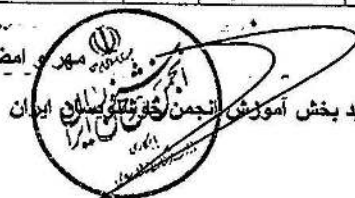 مهر و امض
ید بخش آموزش انجمن خوشنویسان ایران
انجمن خوشنویسان ایران